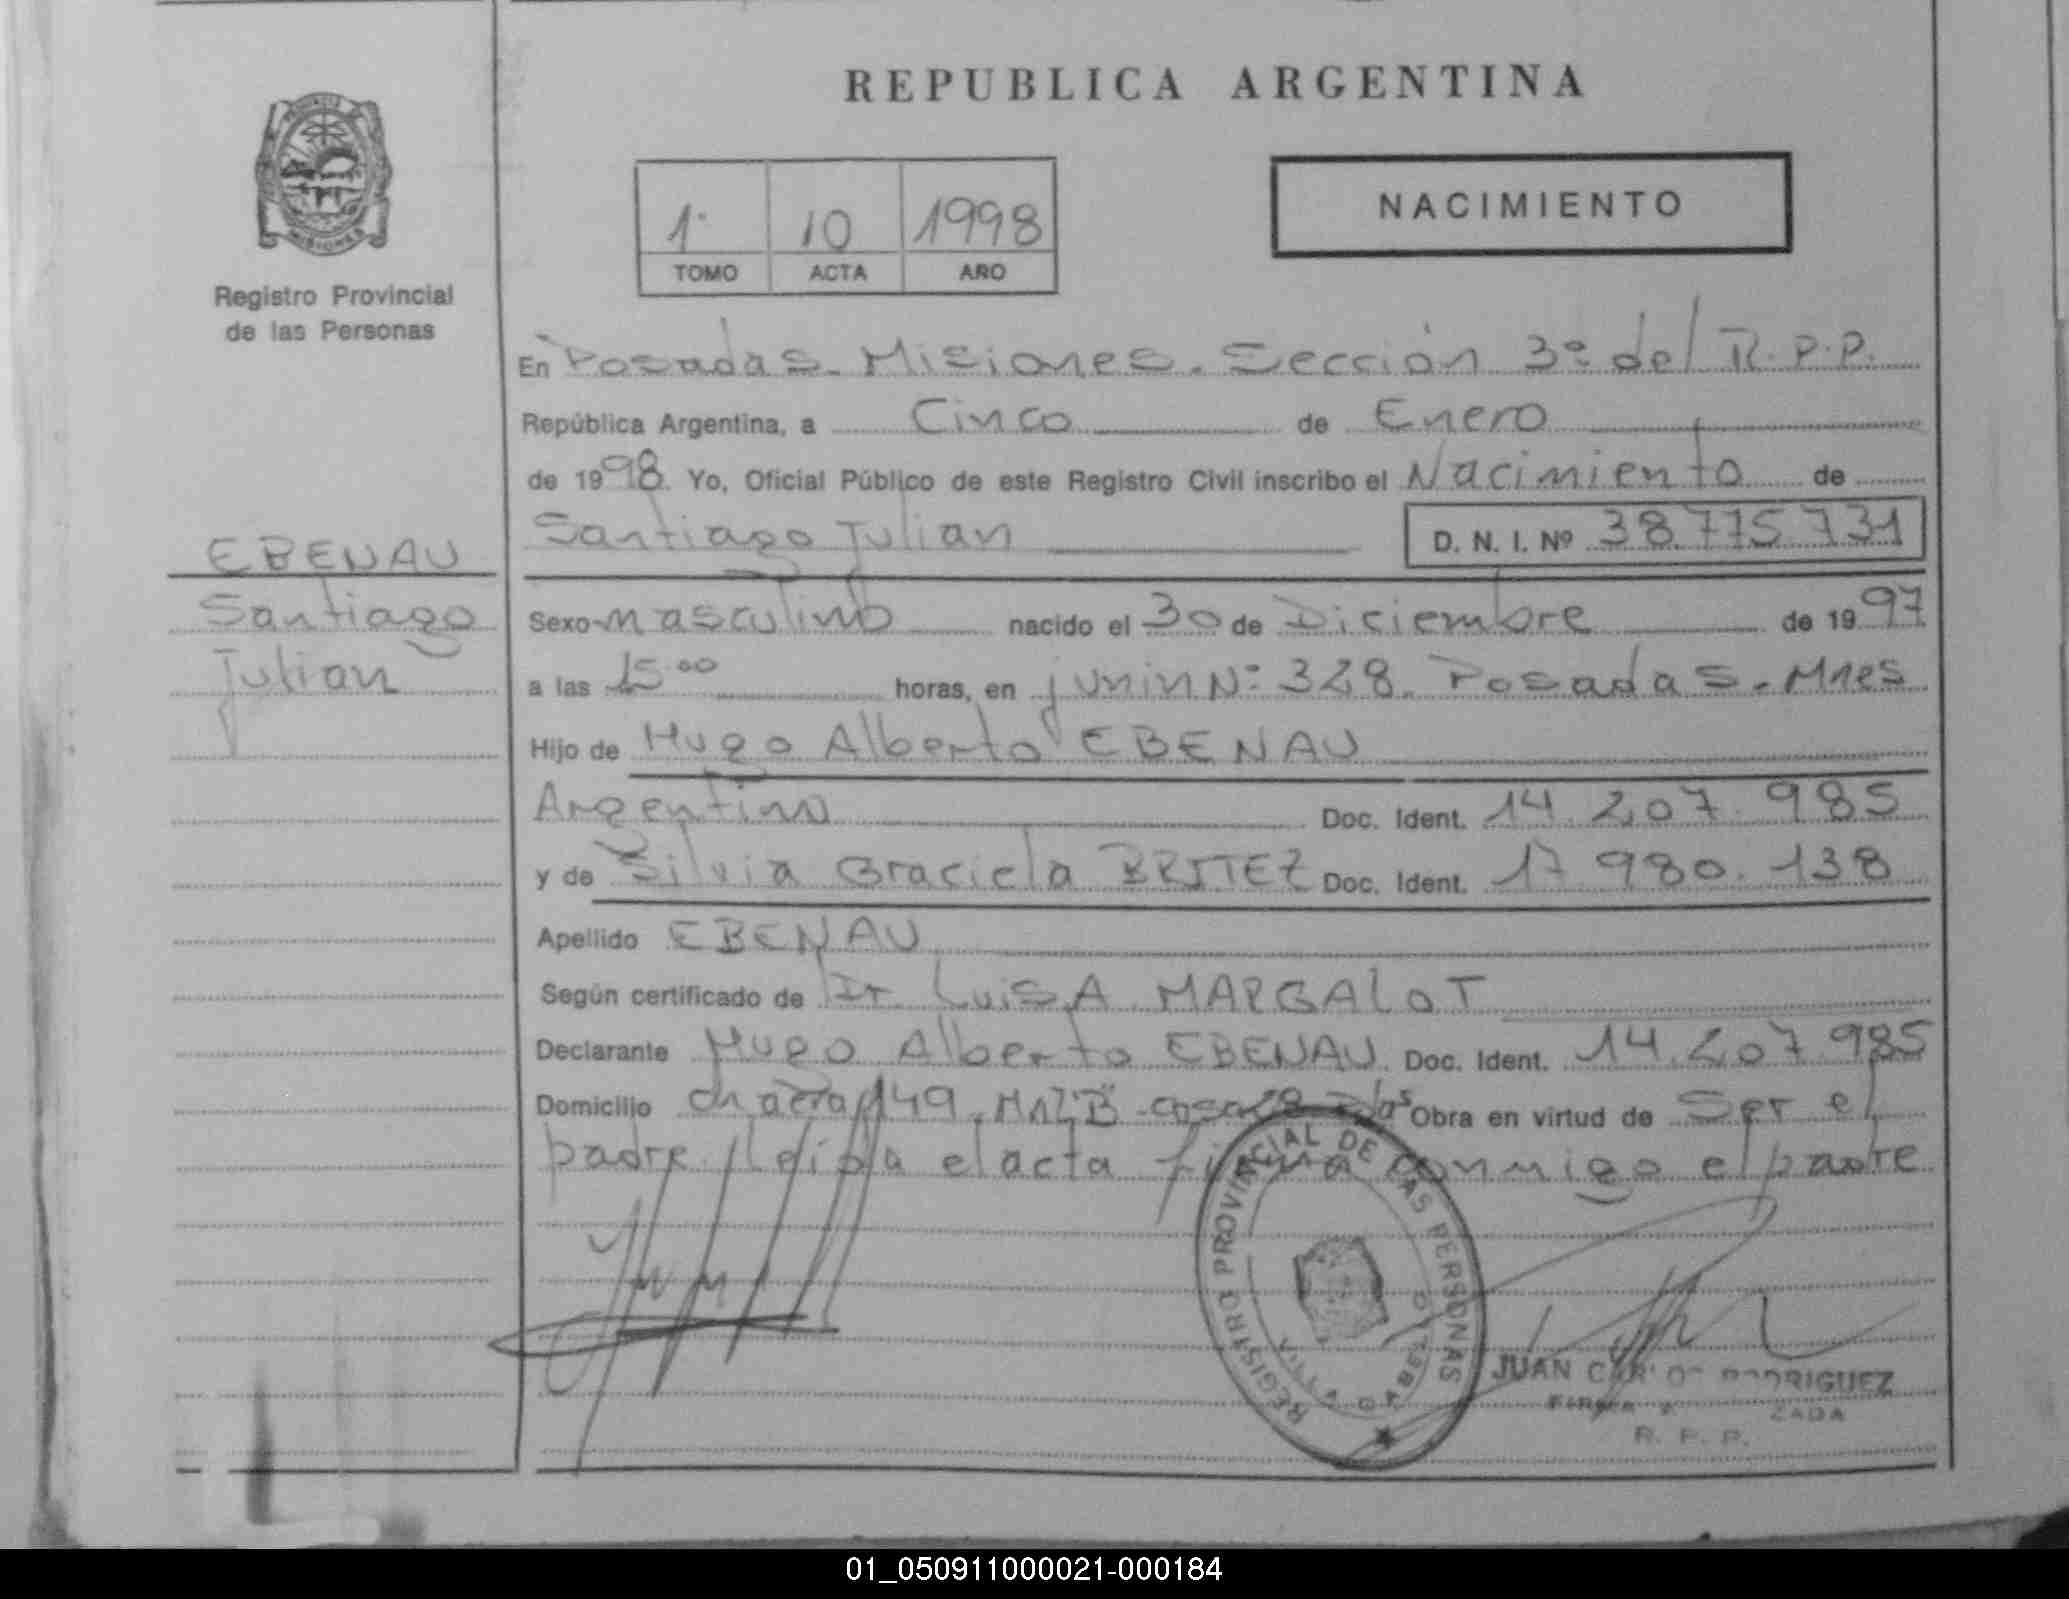 REPUBLICA ARGENTINA
MISIONES
Registro Provincial
de las Personas
1º 10 1998
TOMO ACTA AÑO
NACIMIENTO
En Posadas - Misiones. Sección 3º del R.P.P.
República Argentina, a Cinco de Enero
de 1998. Yo, Oficial Público de este Registro Civil inscribo el Nacimiento de
Santiago Julian D. N. I. Nº 38.775.731
EBENAU
Santiago
Julian
Sexo masculino nacido el 30 de Diciembre de 1997
a las 15:00 horas, en junin Nº 328. Posadas - Mnes
Hijo de Hugo Alberto EBENAU
Argentino Doc. Ident. 14.207.985
y de Silvia Graciela BRITEZ Doc. Ident. 17.980.138
Apellido EBENAU
Según certificado de Dr. Luis A MARGALOT
Declarante Hugo Alberto EBENAU. Doc. Ident. 14.207.985
Domicilio chacra 149. MnZ B casa Pdas Obra en virtud de Ser el
padre. Leida el acta firma conmigo el padre
REGISTRO PROVINCIAL DE LAS PERSONAS
JUAN CARLOS RODRIGUEZ
FIRMA
R. P. P.
01_050911000021-000184